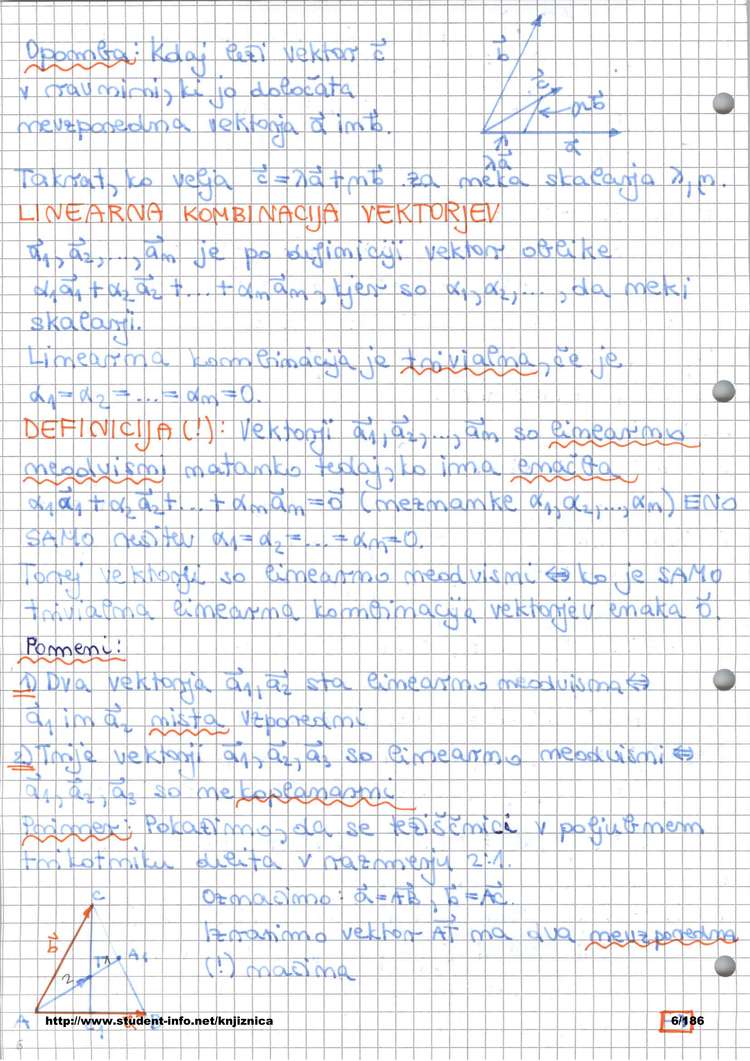 Opomba: Kdaj leži vektor c⃗
v ravnini, ki jo določata
nevzporedna vektorja a⃗ in b⃗.
b⃗
c⃗
μb⃗
λa⃗
a⃗
Takrat, ko velja c⃗ = λa⃗ + μb⃗ za neka skalarja λ, μ.
LINEARNA KOMBINACIJA VEKTORJEV
a⃗₁, a⃗₂, ..., a⃗ₙ je po definiciji vektor oblike
α₁a⃗₁ + α₂a⃗₂ + ... + αₙa⃗ₙ, kjer so α₁, α₂, ..., αn neki
skalarji.
Linearna kombinacija je trivialna, če je
α₁ = α₂ = ... = αₙ = 0.
DEFINICIJA (!): Vektorji a⃗₁, a⃗₂, ..., a⃗ₙ so linearno
neodvisni natanko tedaj, ko ima enačba
α₁a⃗₁ + α₂a⃗₂ + ... + αₙa⃗ₙ = 0⃗ (neznanke α₁, α₂, ..., αₙ) ENO
SAMO rešitev α₁ = α₂ = ... = αₙ = 0.
Torej vektorji so linearno neodvisni ⇔ ko je SAMO
trivialna linearna kombinacija vektorjev enaka 0⃗.
Pomeni:
1) Dva vektorja a⃗₁, a⃗₂ sta linearno neodvisna ⇔
a⃗₁ in a⃗₂ nista vzporedni
2) Trije vektorji a⃗₁, a⃗₂, a⃗₃ so linearno neodvisni ⇔
a⃗₁, a⃗₂, a⃗₃ so nekoplanarni
Primer: Pokažimo, da se težiščnici v poljubnem
trikotniku delita v razmerju 2:1.
Označimo: a⃗ = AB⃗, b⃗ = AC⃗.
Izrazimo vektor AT⃗ na dva nevzporedna
(!) načina
C
b⃗
T
1
A₁
2
A
C₁
a⃗
B
http://www.student-info.net/knjiznica
6/186